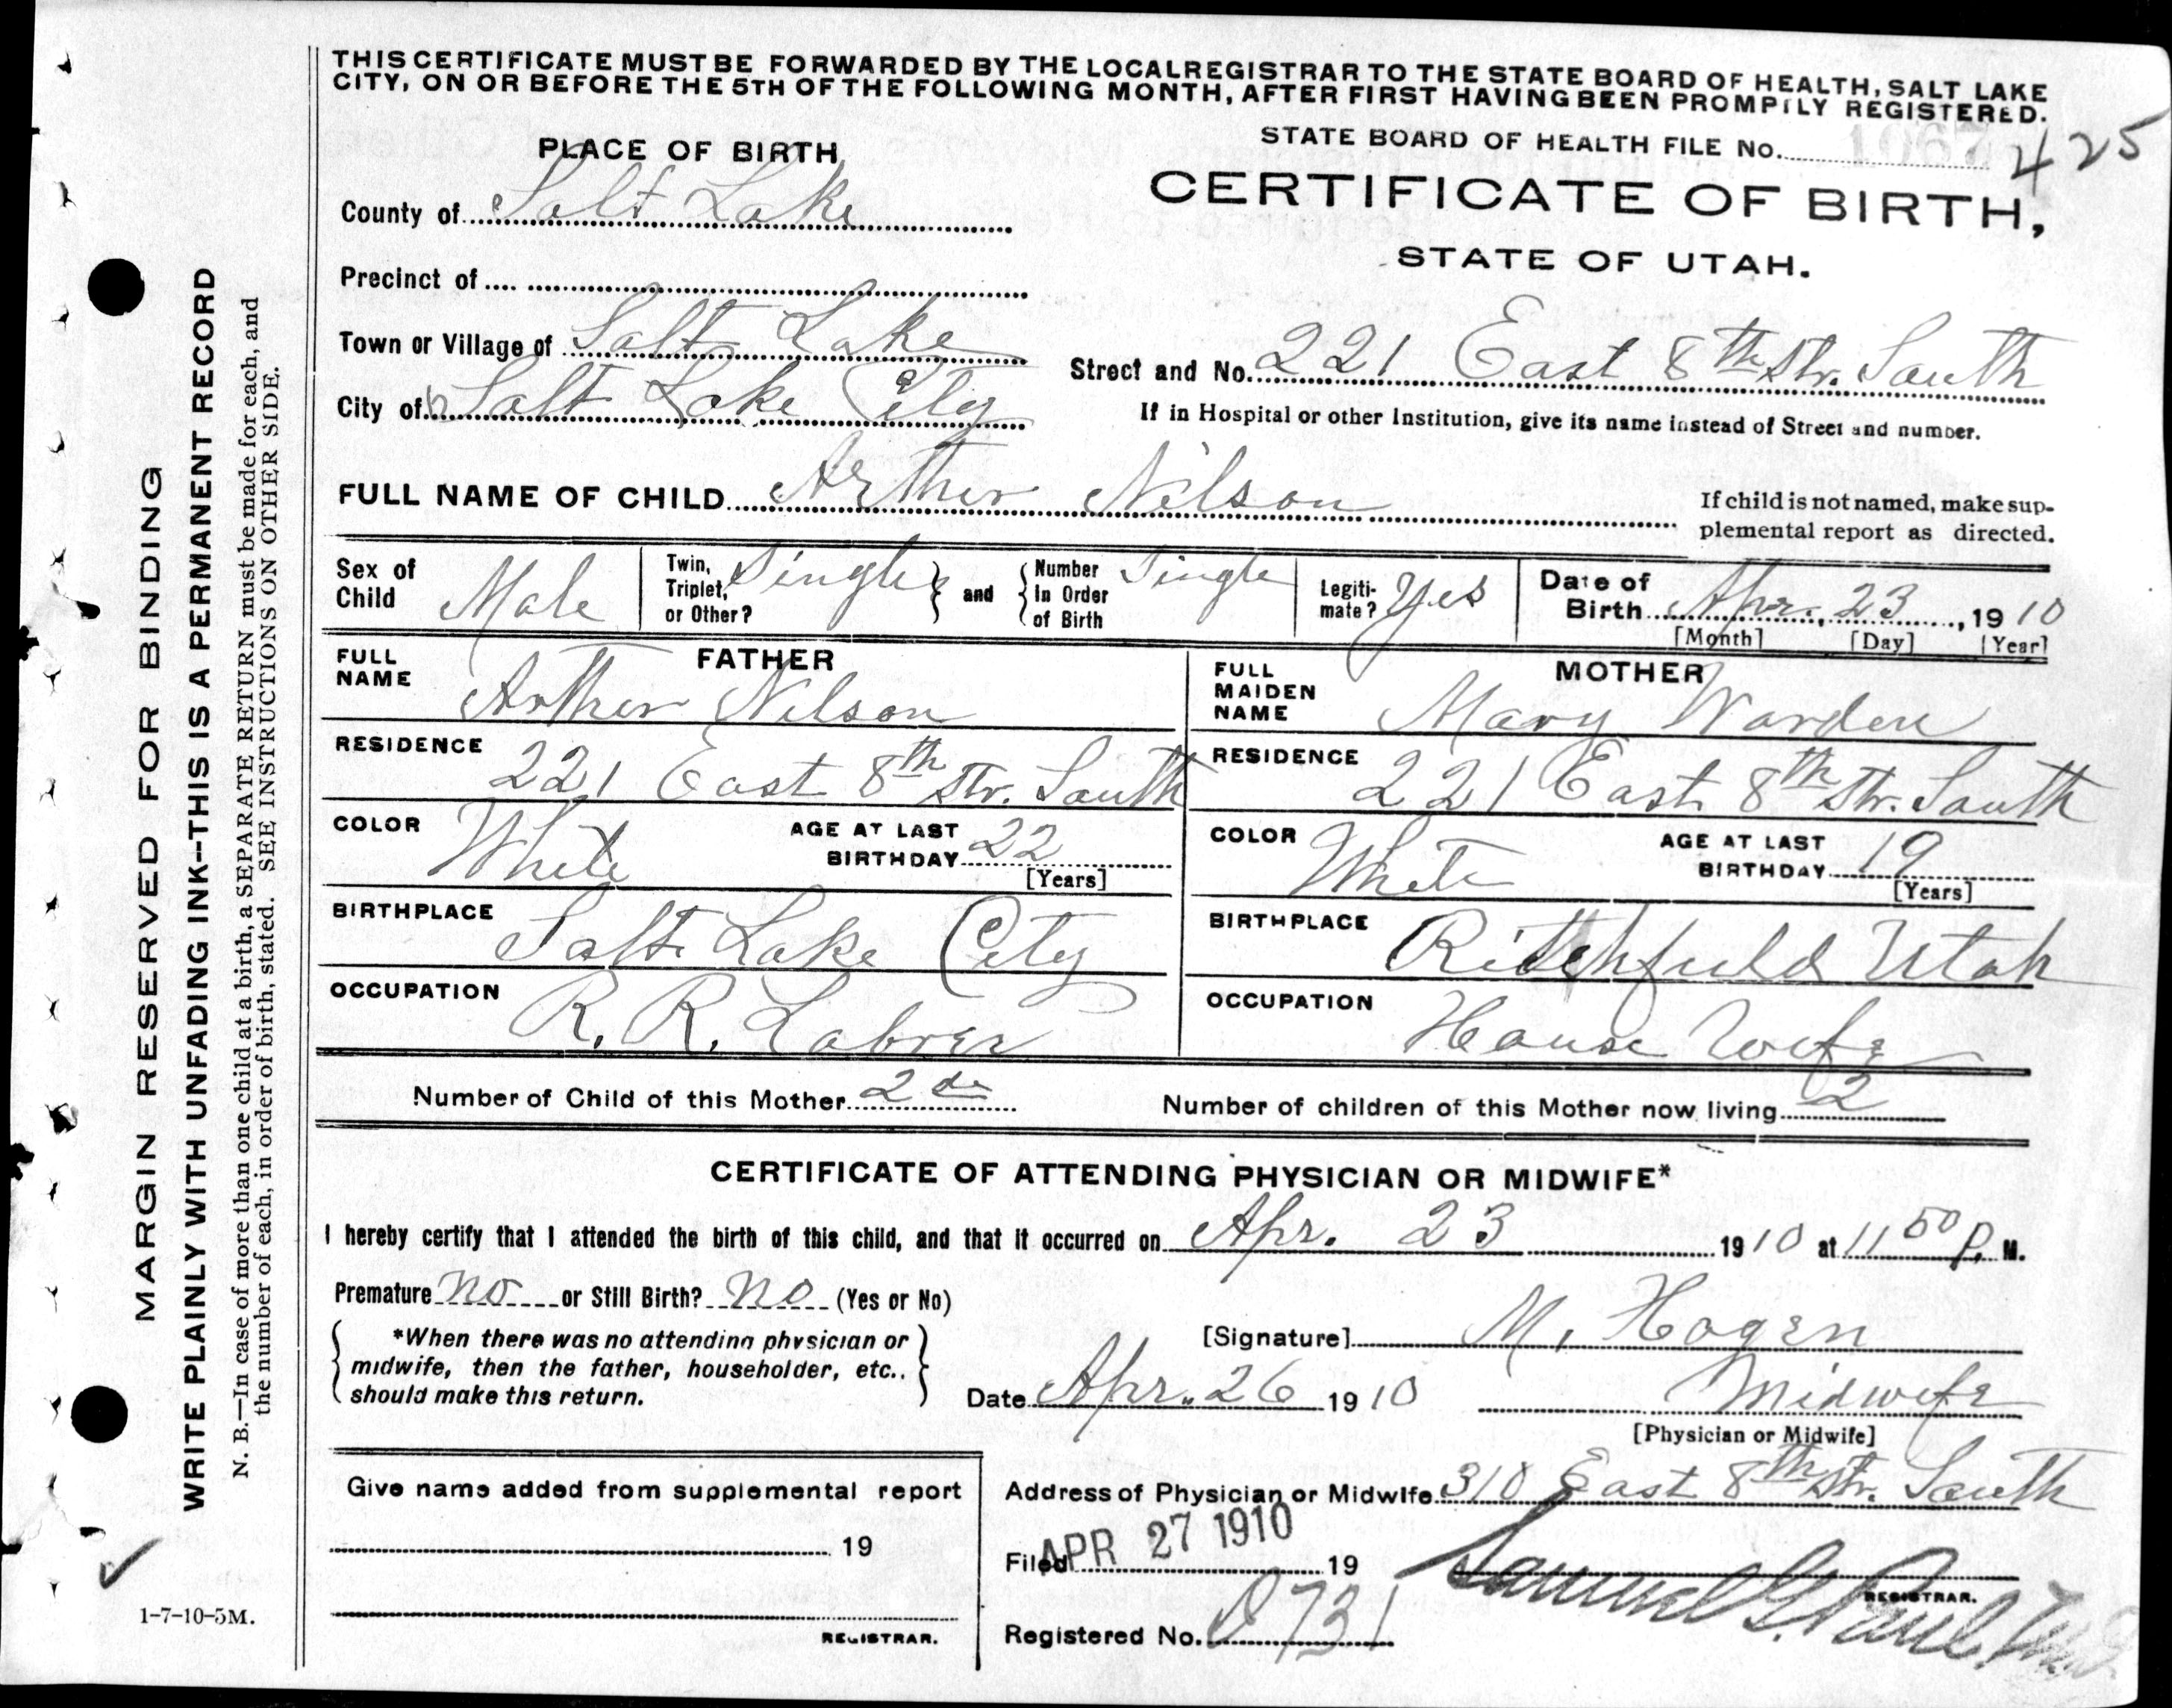 THIS CERTIFICATE MUST BE FORWARDED BY THE LOCAL REGISTRAR TO THE STATE BOARD OF HEALTH, SALT LAKE
CITY, ON OR BEFORE THE 5TH OF THE FOLLOWING MONTH, AFTER FIRST HAVING BEEN PROMPTLY REGISTERED.
PLACE OF BIRTH
STATE BOARD OF HEALTH FILE No. 425
County of Salt Lake
CERTIFICATE OF BIRTH,
STATE OF UTAH.
Precinct of
Town or Village of Salt Lake
Street and No. 221 East 8th Str. South
City of Salt Lake City
If in Hospital or other Institution, give its name instead of Street and number.
FULL NAME OF CHILD Arther Nilson
If child is not named, make sup-
plemental report as directed.
Sex of Child Male
Twin, Triplet, or Other? Single
and
Number In Order of Birth Single
Legiti-mate? Yes
Date of Birth Apr. 23, 1910
[Month] [Day] [Year]
FATHER
FULL NAME Arther Nilson
MOTHER
FULL MAIDEN NAME Mary Warden
RESIDENCE 221 East 8th Str. South
RESIDENCE 221 East 8th Str. South
COLOR White
AGE AT LAST BIRTHDAY 22
[Years]
COLOR White
AGE AT LAST BIRTHDAY 19
[Years]
BIRTHPLACE Salt Lake City
BIRTHPLACE Ritchfield Utah
OCCUPATION R. R. Labrer
OCCUPATION House Wife
Number of Child of this Mother 2de
Number of children of this Mother now living 2
CERTIFICATE OF ATTENDING PHYSICIAN OR MIDWIFE*
I hereby certify that I attended the birth of this child, and that it occurred on Apr. 23 1910 at 11 50 P. M.
Premature no or Still Birth? no (Yes or No)
*When there was no attending physician or
midwife, then the father, householder, etc..
should make this return.
[Signature] M. Hogen
Date Apr. 26 1910
Midwife
[Physician or Midwife]
Give name added from supplemental report
19
REGISTRAR.
Address of Physician or Midwife 310 East 8th Str. South
Filed APR 27 1910 19
Samuel G. Paul
REGISTRAR.
Registered No. 731
MARGIN RESERVED FOR BINDING
WRITE PLAINLY WITH UNFADING INK--THIS IS A PERMANENT RECORD
N. B.—In case of more than one child at a birth, a SEPARATE RETURN must be made for each, and
the number of each, in order of birth, stated. SEE INSTRUCTIONS ON OTHER SIDE.
1-7-10-5M.